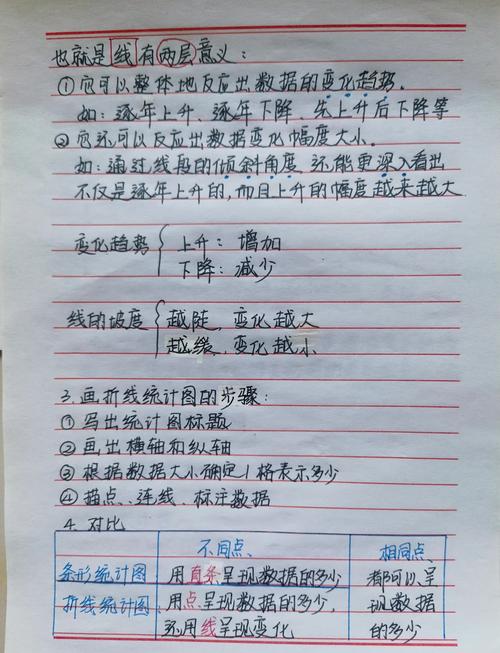 也就是线有两层意义：
①它可以整体地反应出数据的变化趋势。
如：逐年上升、逐年下降、先上升后下降等
②它还可以反应出数据变化幅度大小。
如：通过线段的倾斜角度，还能更深入看出
不仅是逐年上升的，而且上升的幅度越来越大
变化趋势 上升：增加
下降：减少
线的坡度 越陡，变化越大
越缓，变化越小
3.画折线统计图的步骤：
①写出统计图标题
②画出横轴和纵轴
③根据数据大小确定1格表示多少
④描点、连线、标注数据
4.对比
不同点、 相同点、
条形统计图 用直条呈现数据的多少 都可以呈
折线统计图 用点呈现数据的多少， 现数据
还用线呈现变化 的多少